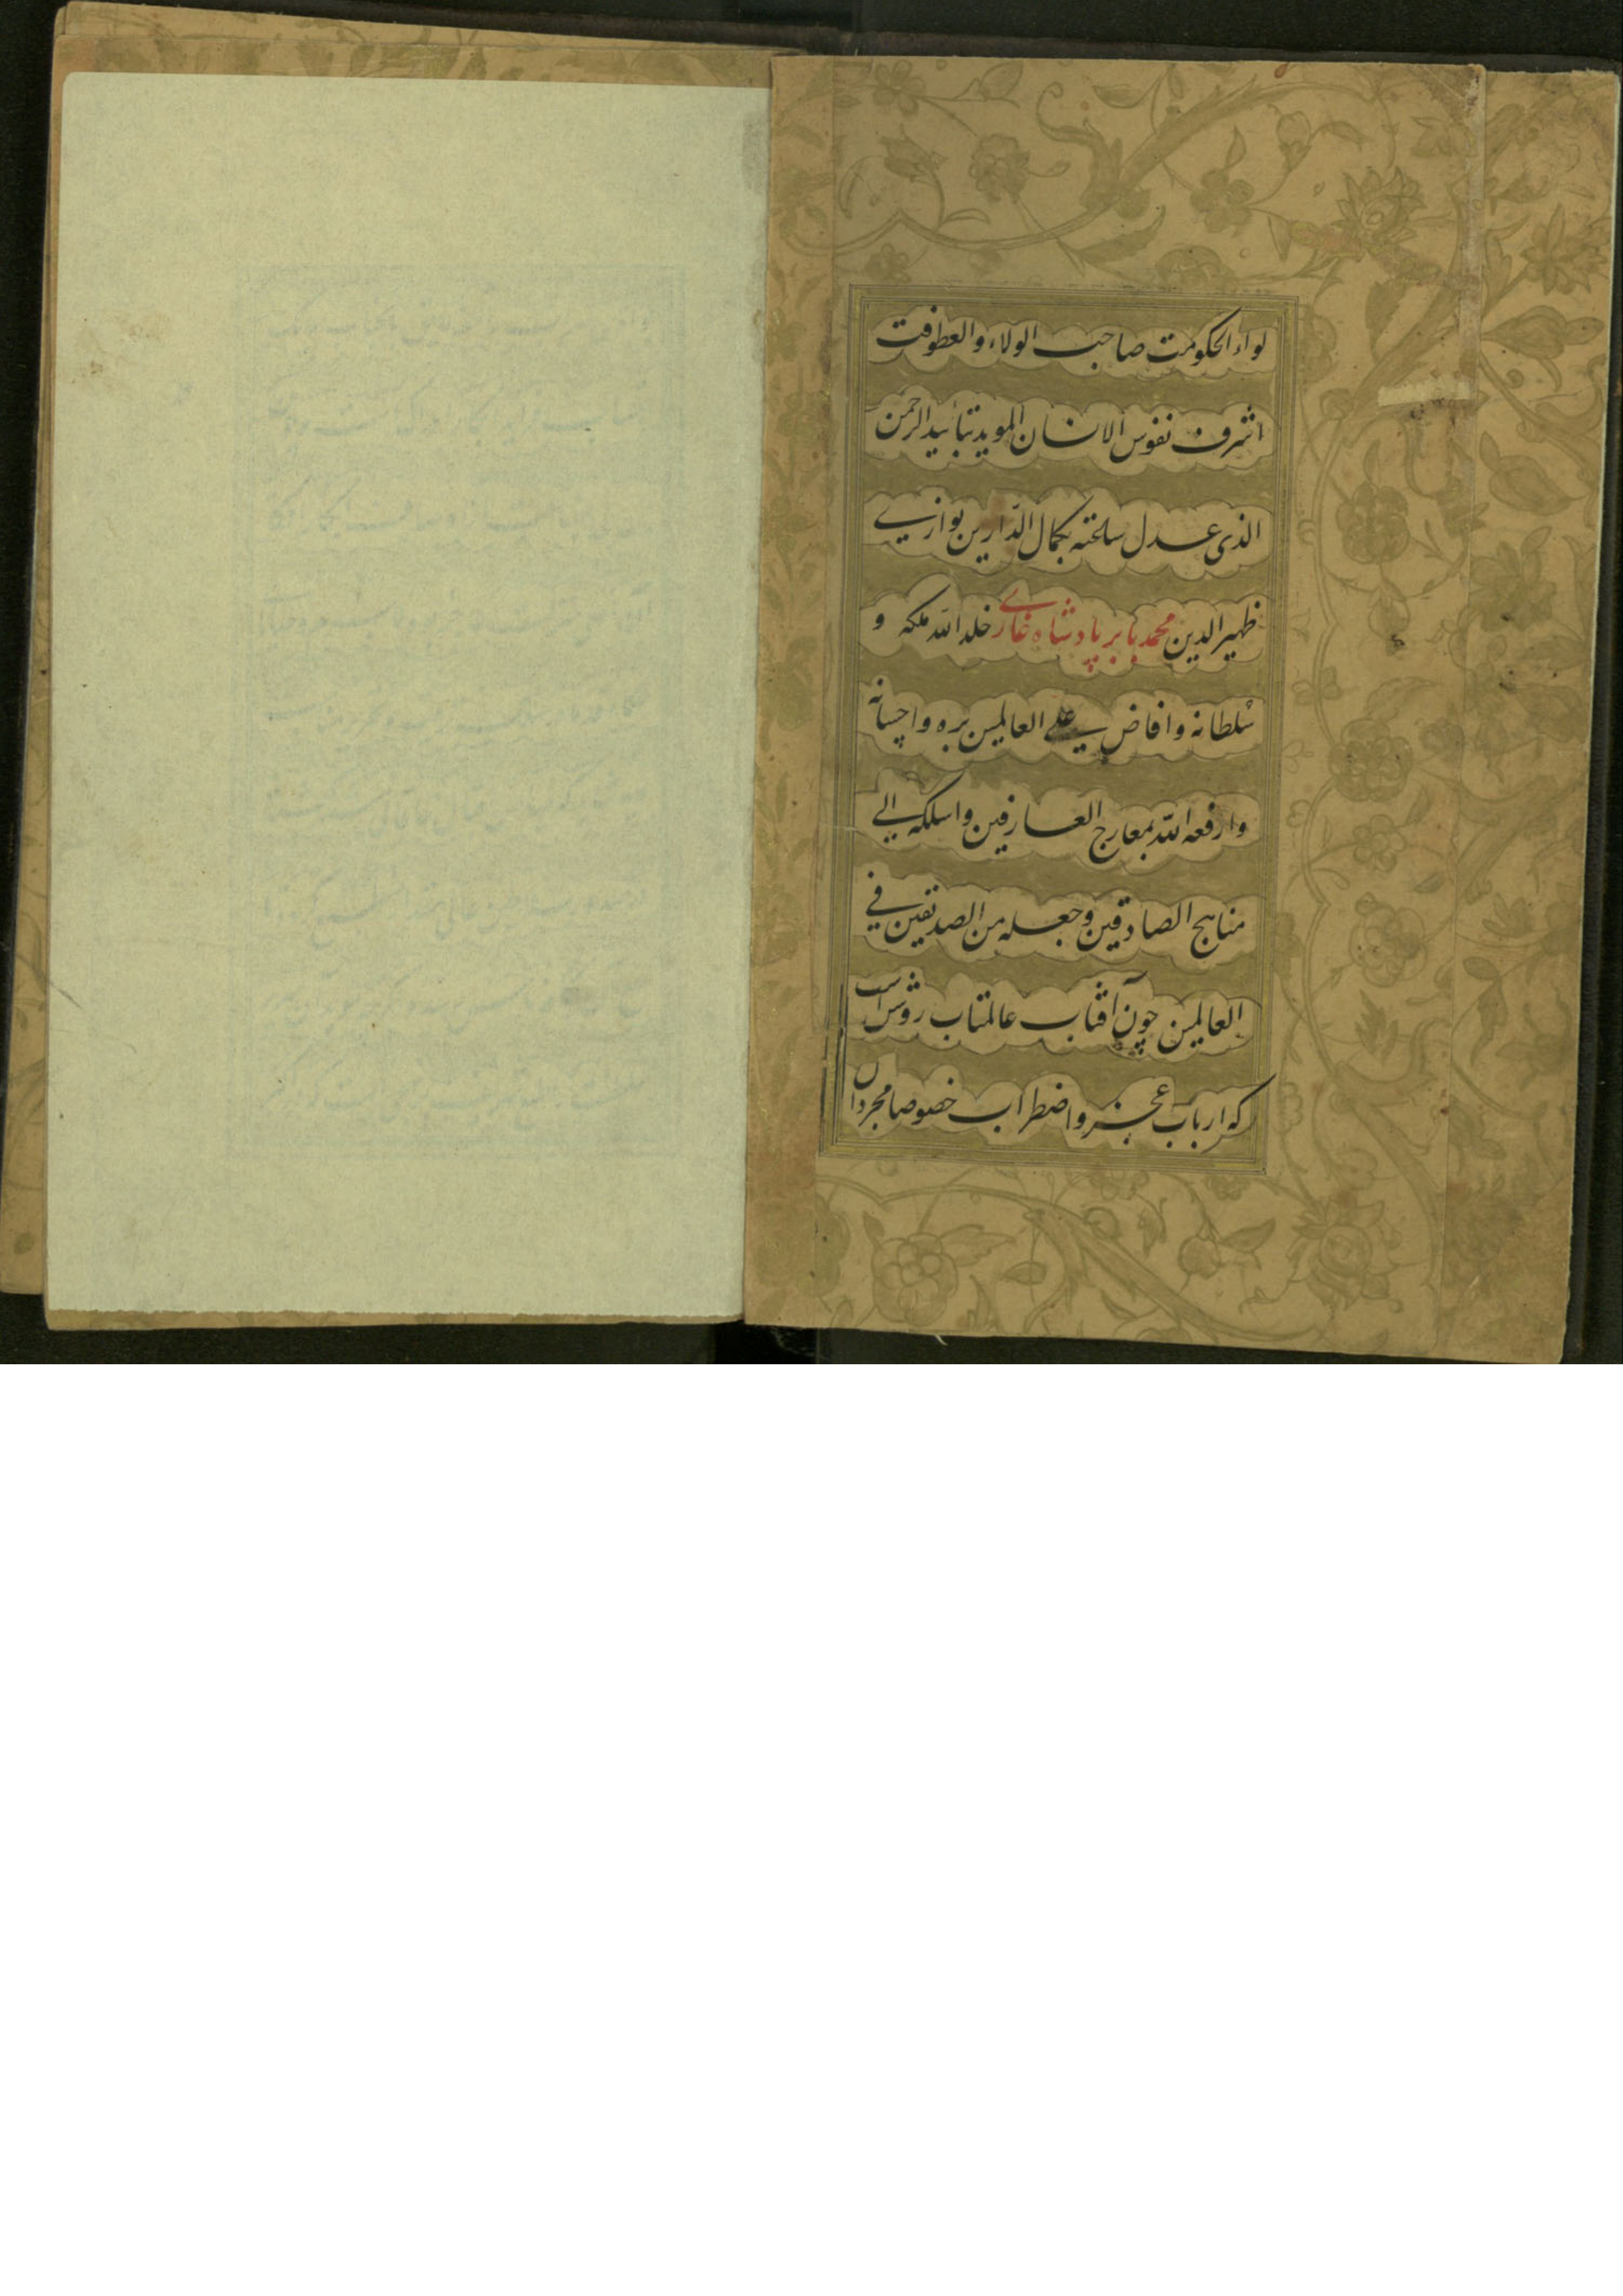 لواء الحکومت صاحب الولاء والعطوفت
اشرف نفوس الانسان الموید بتائید الرحمن
الذی عدل سلطنته بکمال الدّارین یوازی
ظهیر الدین محمد بابر پادشاه غازی خلد الله ملکه و
سلطانه و افاض علی العالمین بره و احسانه
وارفعه الله بمعارج العارفین واسلکه الی
مناهج الصادقین وجعله من الصدیقین فی
العالمین چون آفتاب عالمتاب روشن است
که ارباب عجز و اضطراب خصوصا مجردان